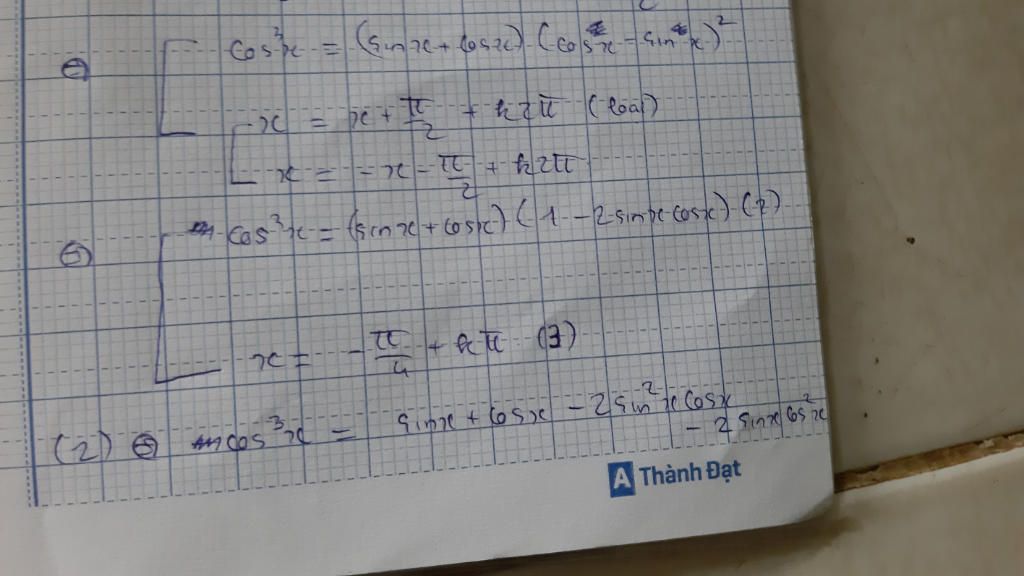 ⇔ cos³x = (sinx + cosx) (cosx - sinx)²
x = x + π/2 + k2π (loại)
x = -x - π/2 + k2π
⇔ cos³x = (sinx + cosx) (1 - 2sinx cosx) (2)
x = -π/4 + kπ (3)
(2) ⇔ cos³x = sinx + cosx - 2sin²x cosx
- 2 sinx cos²x
A Thành Đạt